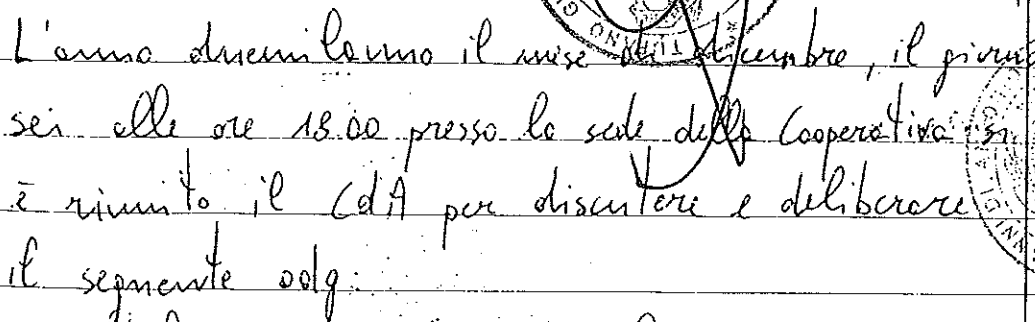 L'anno duemilauno il mese di dicembre, il giorno
sei alle ore 18.00 presso la sede della Cooperativa si
è riunito il CdA per discutere e deliberare
il seguente odg: